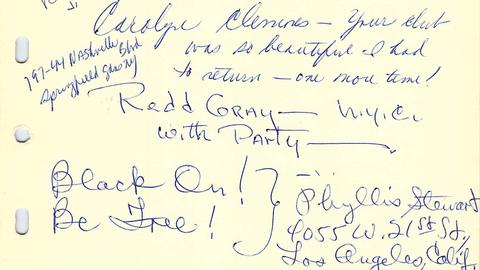 Carolyn Clemons – Your club
was so beautiful I had
to return – one more time!
197-44 Nashville Blvd
Springfield Gdns NY
Redd GRAY – N.Y.C.
with PARTY
Black On!
Be Free!
Phyllis Stewart
4055 W. 21st St.,
Los Angeles, Calif.